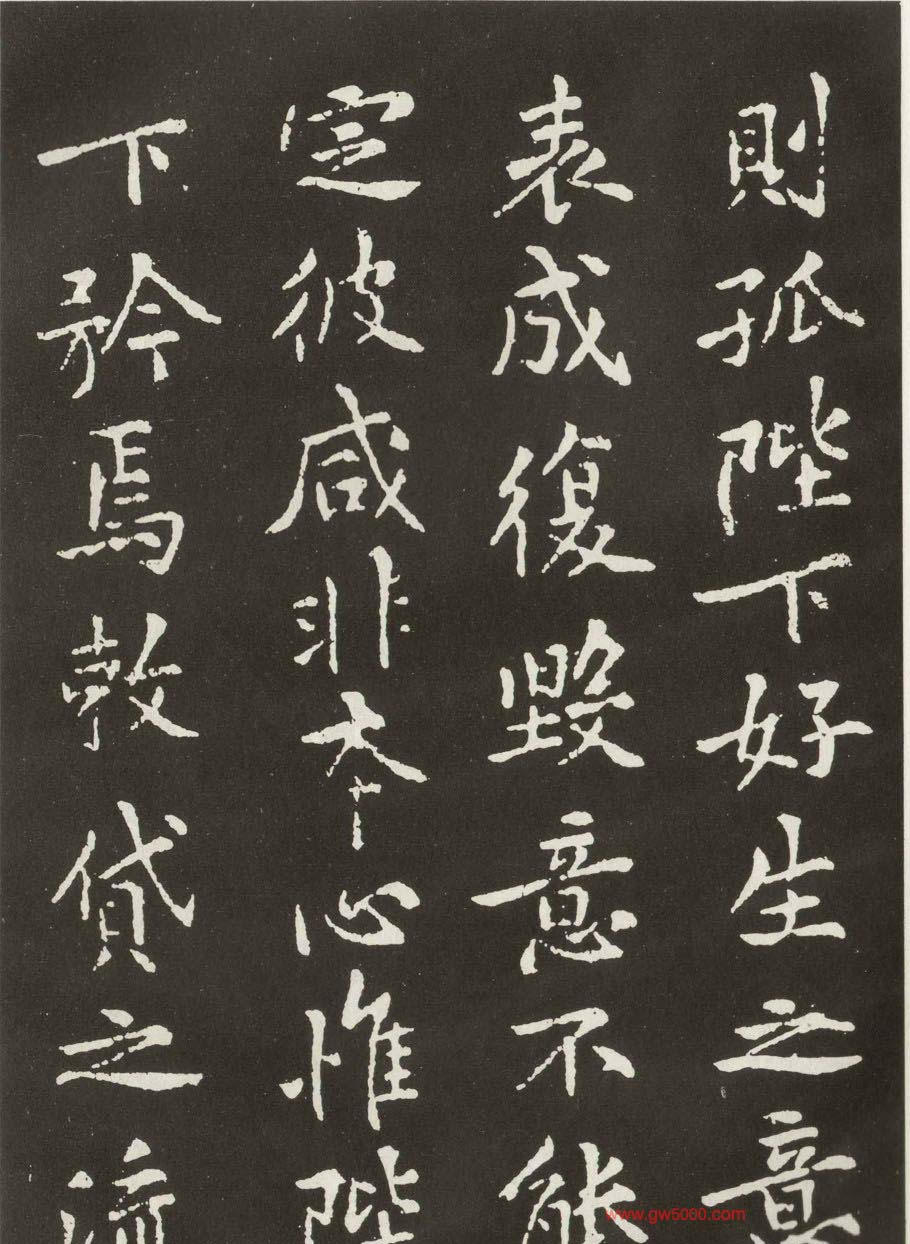 則孤陛下好生之意
表成復毀意不能
定彼咸非本心惟陛
下矜焉敕貸之流
www.gw5000.com